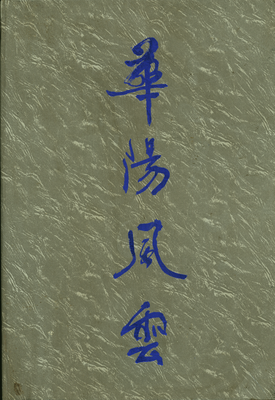 華陽風雲